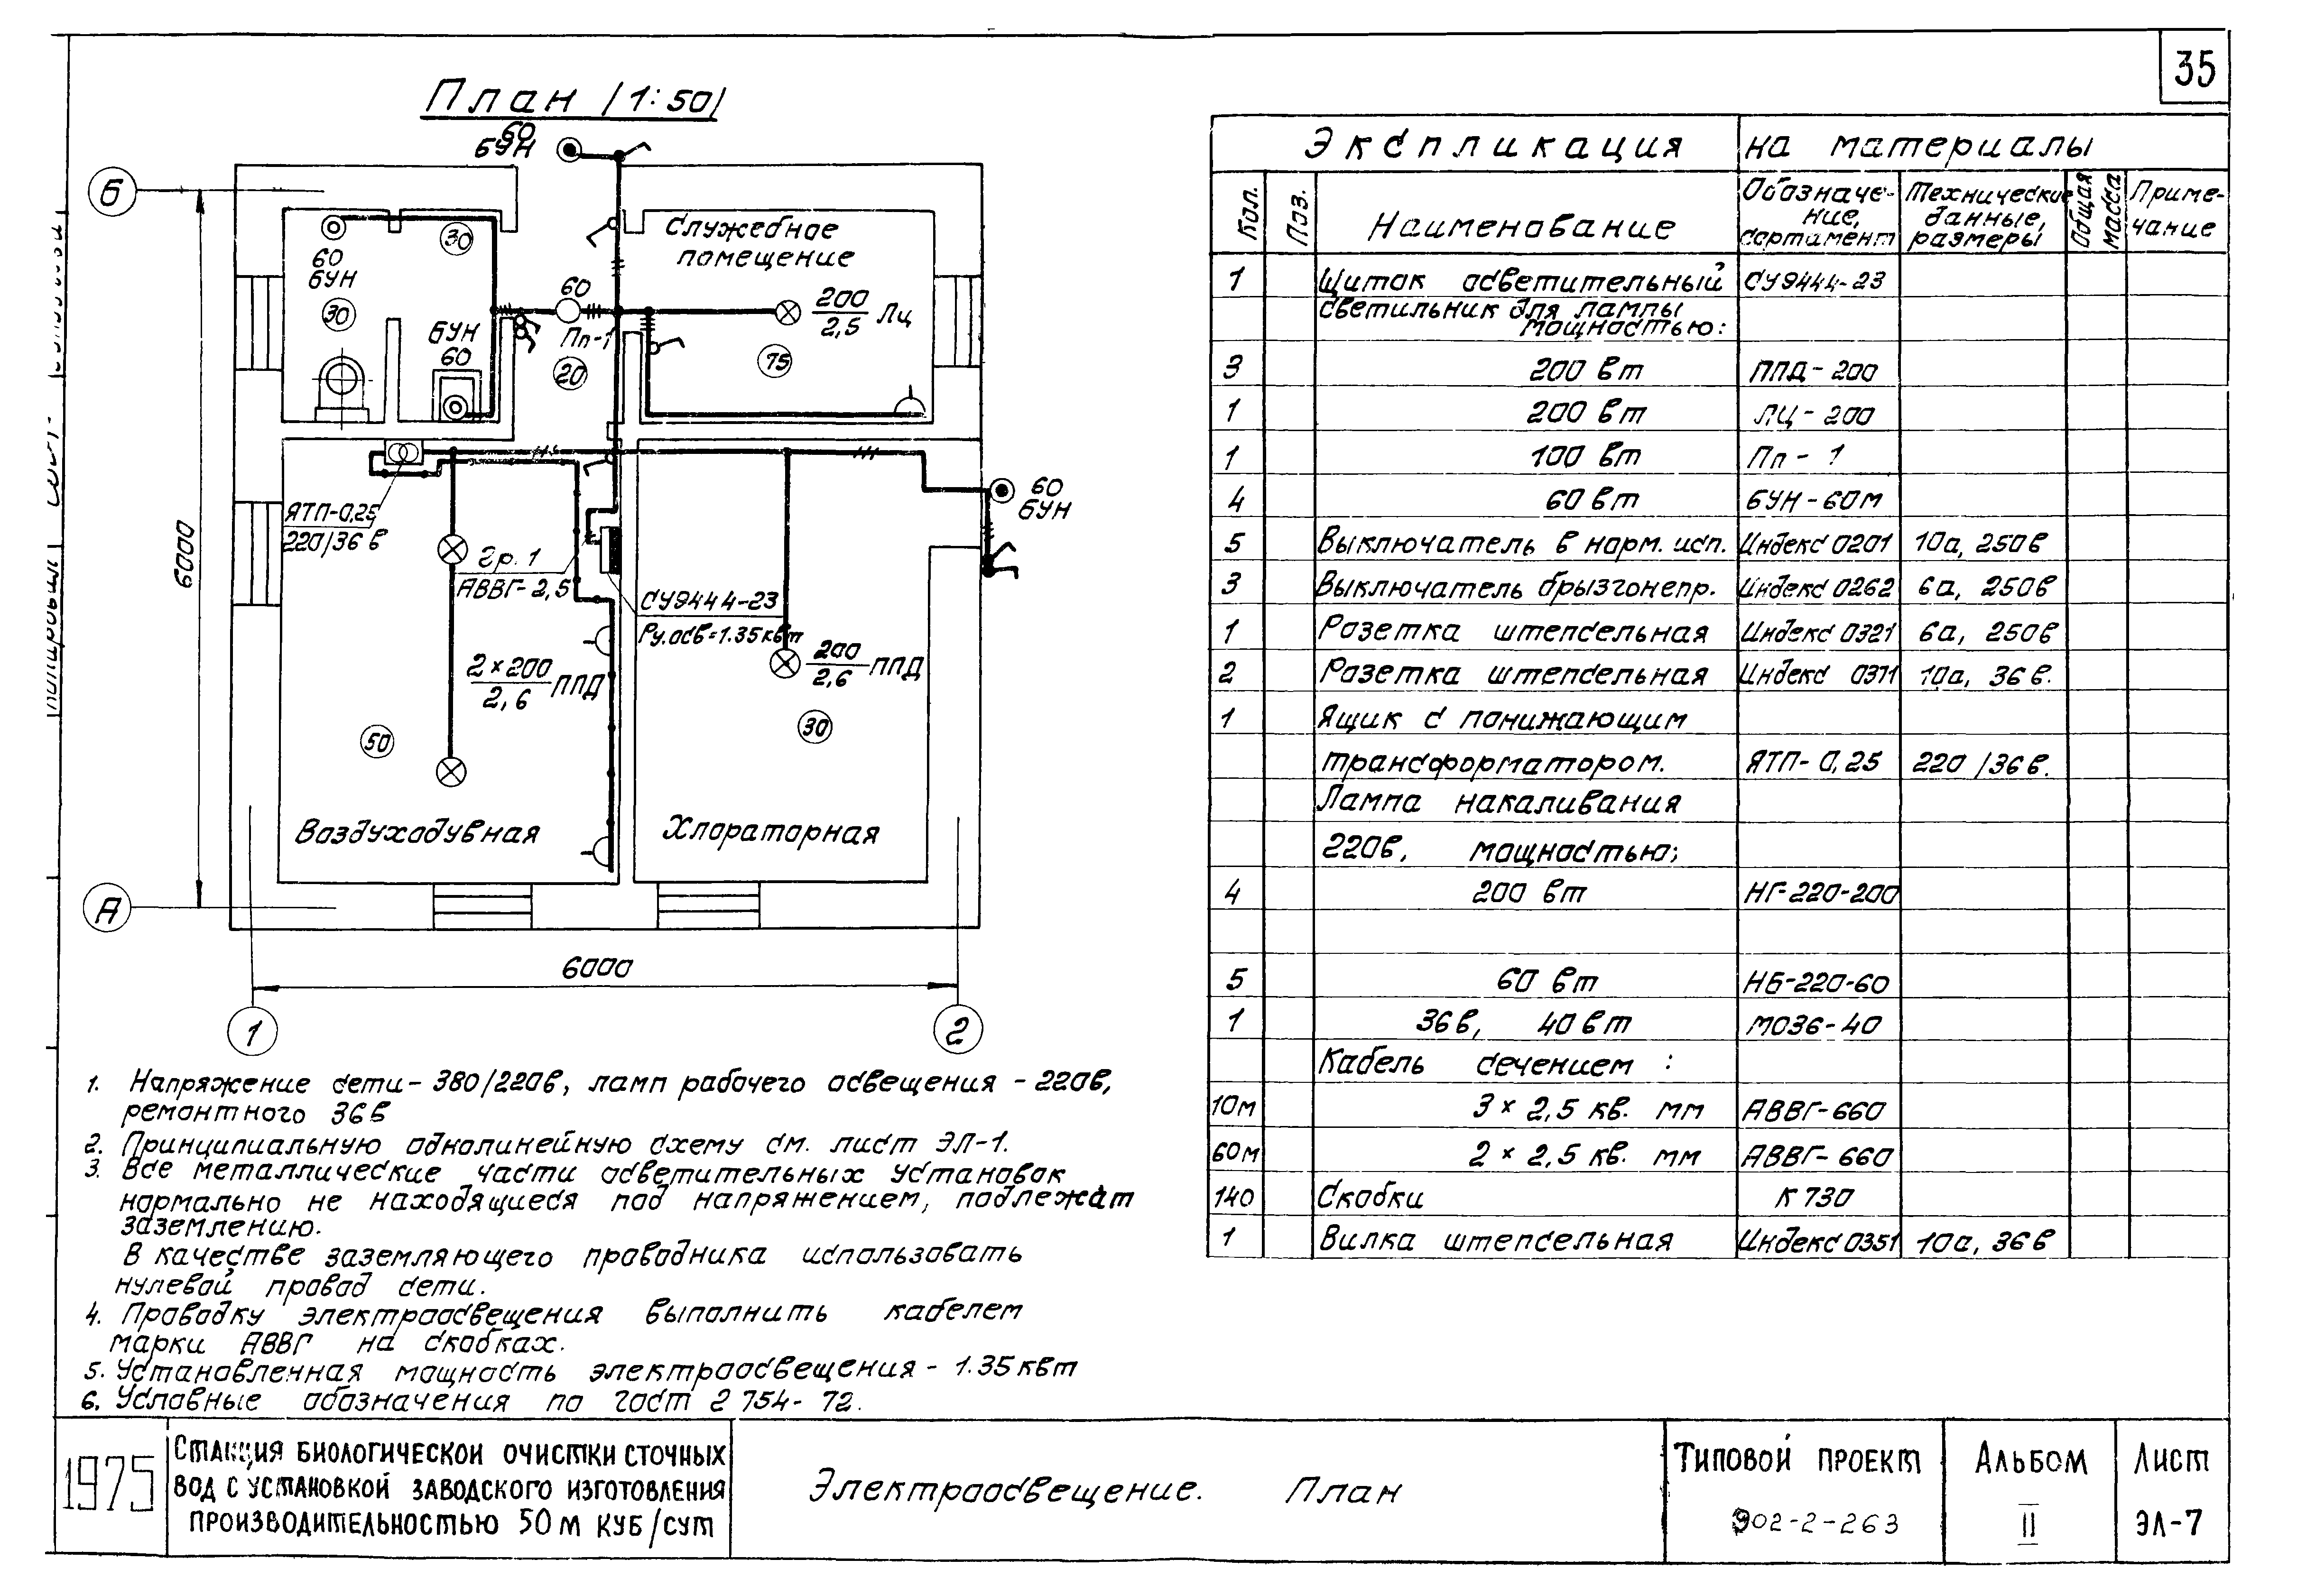 35
План /1:50/
60
БУН
Б
30
60
БУН
30
БУН
60
60
Пп-1
20
Служебное
помещение
200
2,5
Лц
75
60
БУН
ЯТП-0,25
220/36 в
гр. 1
АВВГ-2,5
СУ9444-23
Ру.осв=1.35 квт
2×200
2,6
ППД
200
2,6
ППД
50
30
Воздуходувная
Хлораторная
6000
А
6000
1
2
Экспликация на материалы
Кол.
Поз.
Наименование
Обозначе-
ние,
сортамент
Технические
данные,
размеры
Общая
масса
Приме-
чание
1 Щиток осветительный СУ9444-23
светильник для лампы
мощностью:
3 200 вт ППД-200
1 200 вт ЛЦ-200
1 100 вт Пп-1
4 60 вт БУН-60м
5 Выключатель в норм. исп. Индекс 0201 10а, 250в
3 Выключатель брызгонепр. Индекс 0262 6а, 250в
1 Розетка штепсельная Индекс 0321 6а, 250в
2 Розетка штепсельная Индекс 0371 10а, 36в.
1 Ящик с понижающим
трансформатором. ЯТП-0,25 220/36в.
Лампа накаливания
220в, мощностью;
4 200 вт НГ-220-200
5 60 вт НБ-220-60
1 36в, 40вт МО36-40
Кабель сечением :
10м 3×2,5 кв. мм АВВГ-660
60м 2×2,5 кв. мм АВВГ-660
140 Скобки К730
1 Вилка штепсельная Индекс 0351 10а, 36в
1. Напряжение сети-380/220в, ламп рабочего освещения -220в,
ремонтного 36в
2. Принципиальную однолинейную схему см. лист ЭЛ-1.
3. Все металлические части осветительных установок
нормально не находящиеся под напряжением, подлежат
заземлению.
В качестве заземляющего проводника использовать
нулевой провод сети.
4. Проводку электроосвещения выполнить кабелем
марки АВВГ на скобках.
5. Установленная мощность электроосвещения - 1.35 квт
6. Условные обозначения по гост 2 754-72.
1975
Станция биологической очистки сточных
вод с установкой заводского изготовления
производительностью 50 м куб/сут
Электроосвещение. План
Типовой проект
902-2-263
Альбом
II
Лист
ЭЛ-7